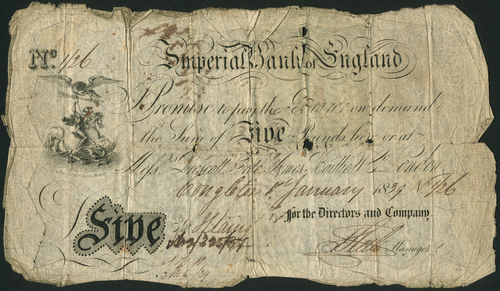 No 426 Imperial Bank of England
I Promise to pay the Bearer on demand
the Sum of Five Pounds here or at
Messrs Prescott, Grote, Ames & Co London
Congleton 1st January 1839 No 426
for the Directors and Company
Five
Manager